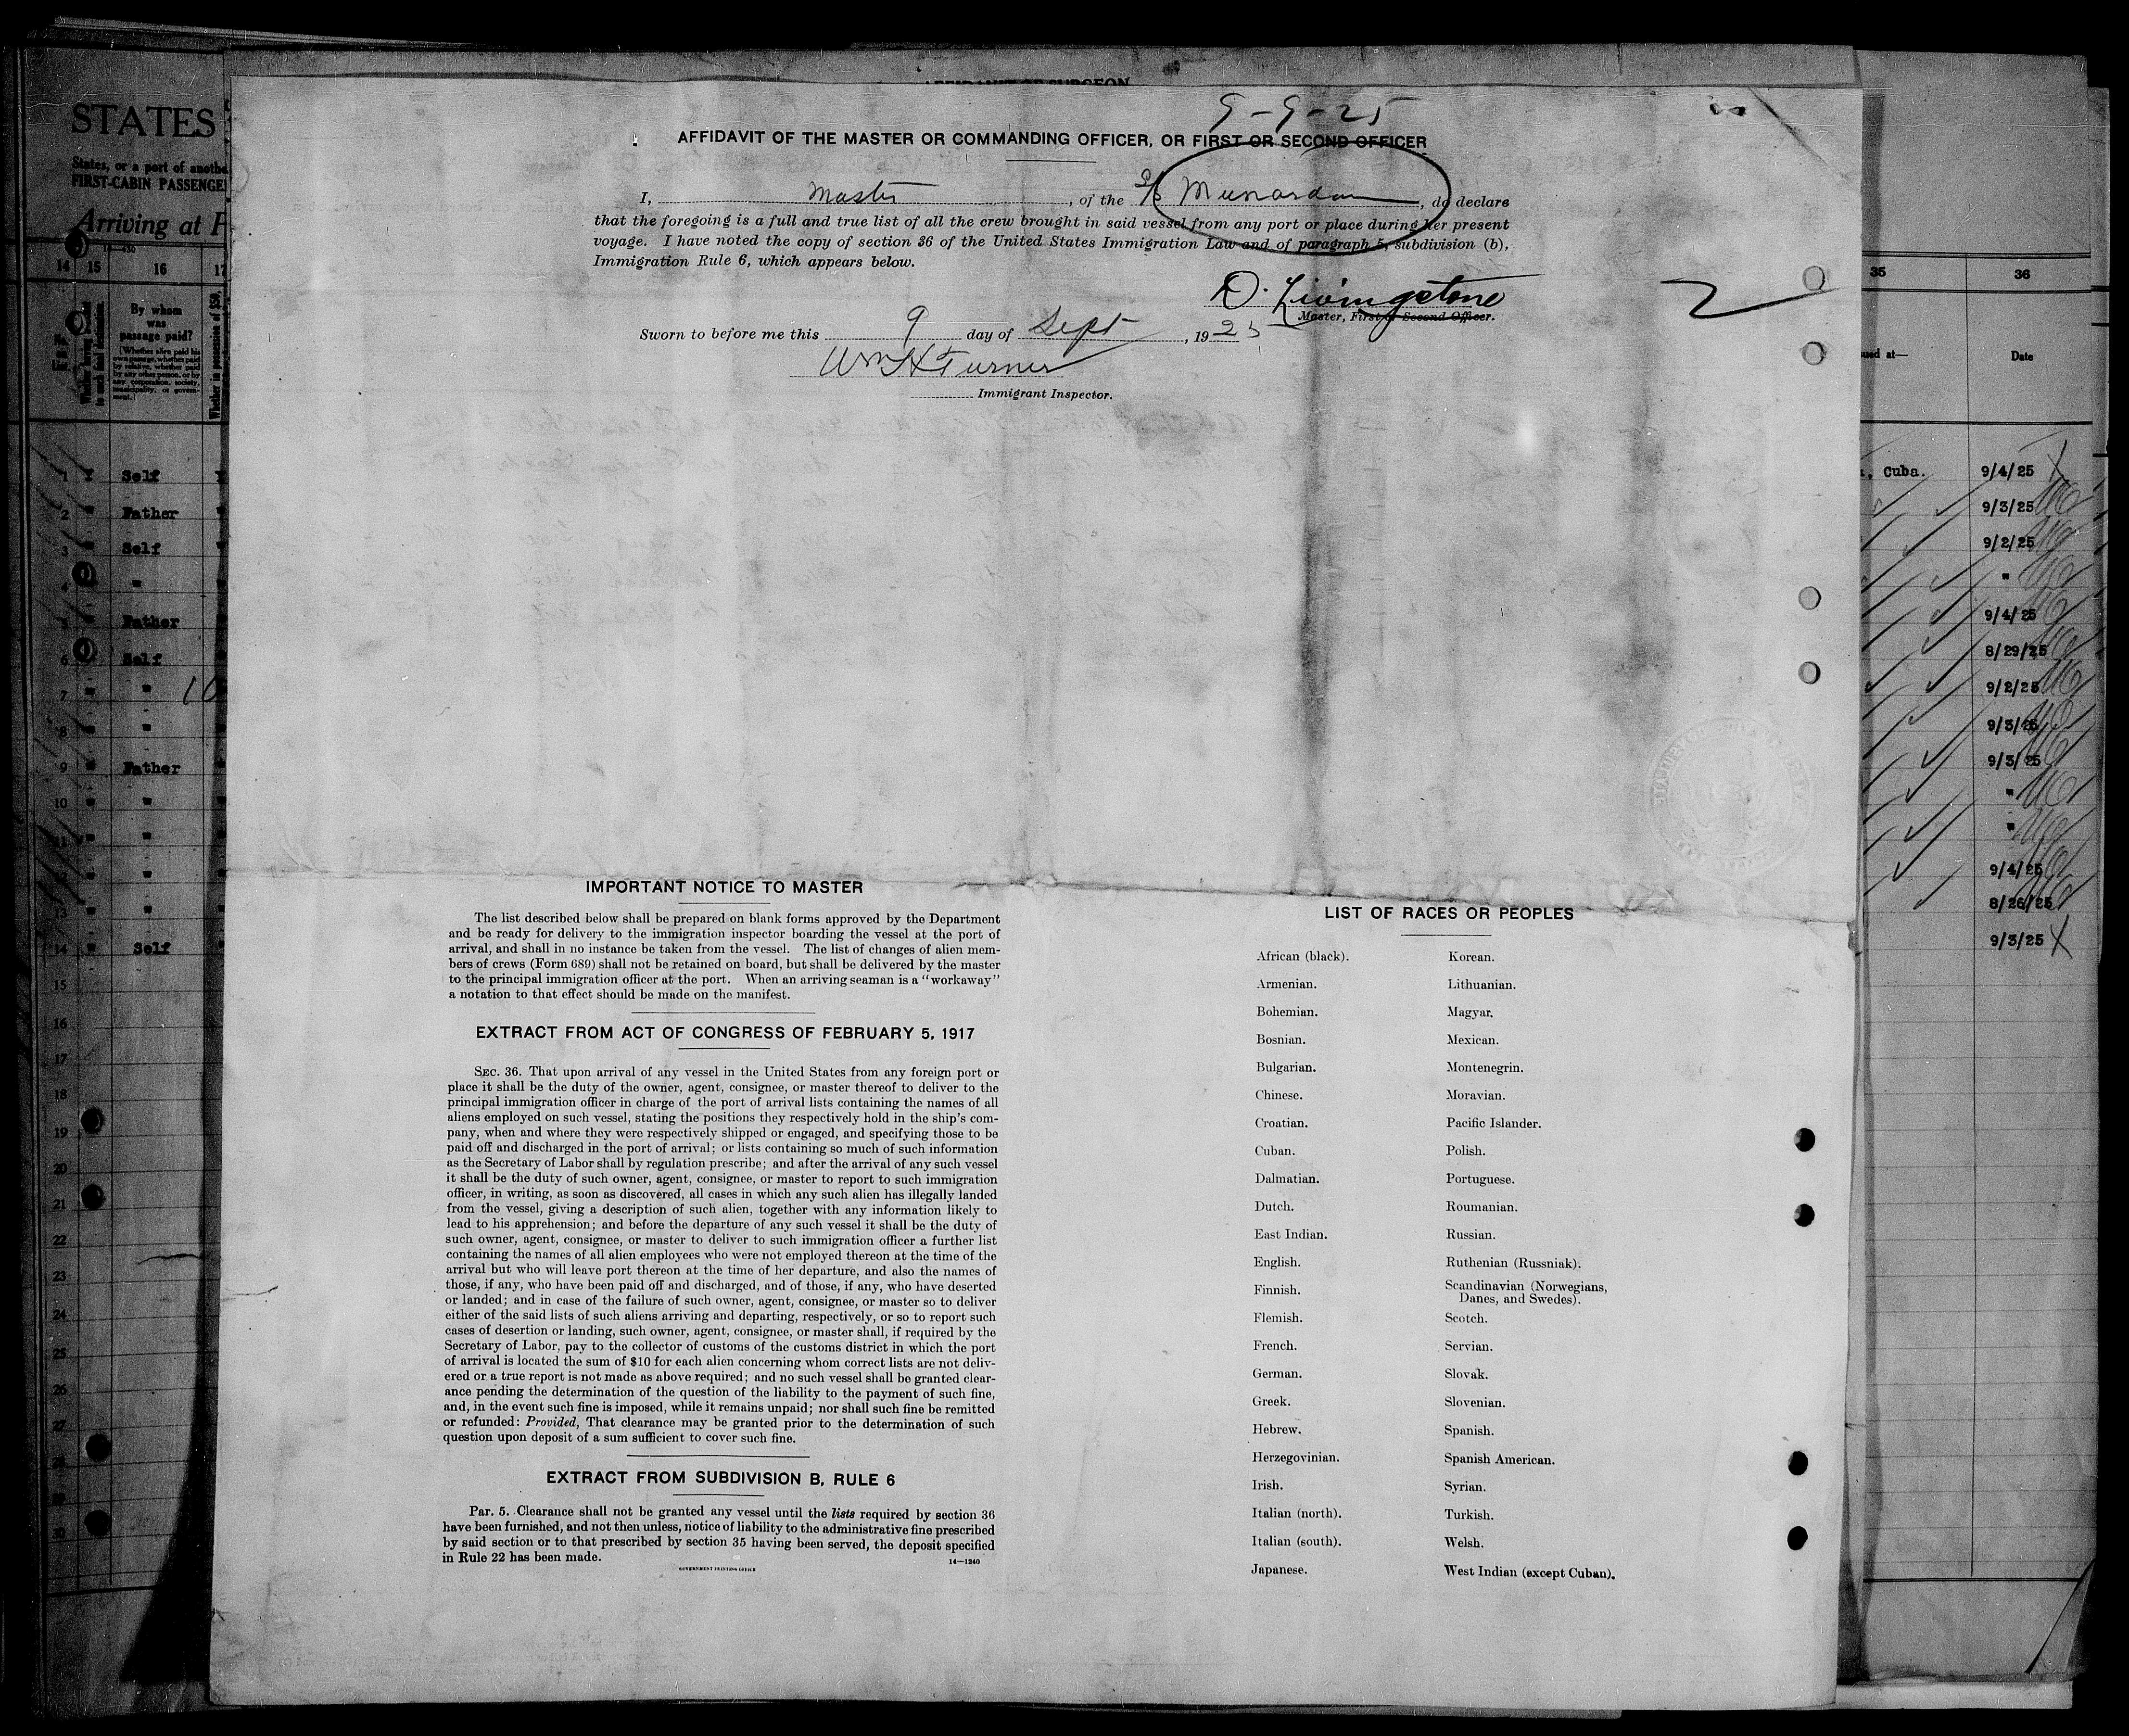 AFFIDAVIT OF SURGEON
9-9-25
AFFIDAVIT OF THE MASTER OR COMMANDING OFFICER, OR FIRST OR SECOND OFFICER
I, Master, of the S/S Munardan, do declare
that the foregoing is a full and true list of all the crew brought in said vessel from any port or place during her present
voyage. I have noted the copy of section 36 of the United States Immigration Law and of paragraph 5, subdivision (b),
Immigration Rule 6, which appears below.
D. Livingstone
Master, First or Second Officer.
Sworn to before me this 9 day of Sept, 1925
Wm H Turner
Immigrant Inspector.
IMPORTANT NOTICE TO MASTER
The list described below shall be prepared on blank forms approved by the Department
and be ready for delivery to the immigration inspector boarding the vessel at the port of
arrival, and shall in no instance be taken from the vessel. The list of changes of alien mem-
bers of crews (Form 689) shall not be retained on board, but shall be delivered by the master
to the principal immigration officer at the port. When an arriving seaman is a "workaway"
a notation to that effect should be made on the manifest.
EXTRACT FROM ACT OF CONGRESS OF FEBRUARY 5, 1917
SEC. 36. That upon arrival of any vessel in the United States from any foreign port or
place it shall be the duty of the owner, agent, consignee, or master thereof to deliver to the
principal immigration officer in charge of the port of arrival lists containing the names of all
aliens employed on such vessel, stating the positions they respectively hold in the ship's com-
pany, when and where they were respectively shipped or engaged, and specifying those to be
paid off and discharged in the port of arrival; or lists containing so much of such information
as the Secretary of Labor shall by regulation prescribe; and after the arrival of any such vessel
it shall be the duty of such owner, agent, consignee, or master to report to such immigration
officer, in writing, as soon as discovered, all cases in which any such alien has illegally landed
from the vessel, giving a description of such alien, together with any information likely to
lead to his apprehension; and before the departure of any such vessel it shall be the duty of
such owner, agent, consignee, or master to deliver to such immigration officer a further list
containing the names of all alien employees who were not employed thereon at the time of the
arrival but who will leave port thereon at the time of her departure, and also the names of
those, if any, who have been paid off and discharged, and of those, if any, who have deserted
or landed; and in case of the failure of such owner, agent, consignee, or master so to deliver
either of the said lists of such aliens arriving and departing, respectively, or so to report such
cases of desertion or landing, such owner, agent, consignee, or master shall, if required by the
Secretary of Labor, pay to the collector of customs of the customs district in which the port
of arrival is located the sum of $10 for each alien concerning whom correct lists are not deliv-
ered or a true report is not made as above required; and no such vessel shall be granted clear-
ance pending the determination of the question of the liability to the payment of such fine,
and, in the event such fine is imposed, while it remains unpaid; nor shall such fine be remitted
or refunded: Provided, That clearance may be granted prior to the determination of such
question upon deposit of a sum sufficient to cover such fine.
EXTRACT FROM SUBDIVISION B, RULE 6
Par. 5. Clearance shall not be granted any vessel until the lists required by section 36
have been furnished, and not then unless, notice of liability to the administrative fine prescribed
by said section or to that prescribed by section 35 having been served, the deposit specified
in Rule 22 has been made.
14—1240
GOVERNMENT PRINTING OFFICE
LIST OF RACES OR PEOPLES
African (black). Korean.
Armenian. Lithuanian.
Bohemian. Magyar.
Bosnian. Mexican.
Bulgarian. Montenegrin.
Chinese. Moravian.
Croatian. Pacific Islander.
Cuban. Polish.
Dalmatian. Portuguese.
Dutch. Roumanian.
East Indian. Russian.
English. Ruthenian (Russniak).
Finnish. Scandinavian (Norwegians,
Danes, and Swedes).
Flemish. Scotch.
French. Servian.
German. Slovak.
Greek. Slovenian.
Hebrew. Spanish.
Herzegovinian. Spanish American.
Irish. Syrian.
Italian (north). Turkish.
Italian (south). Welsh.
Japanese. West Indian (except Cuban).
STATES
States, or a port of anothe
FIRST-CABIN PASSENGE
Arriving at P
14 15 16 17
By whom
was
passage paid?
(Whether alien paid his
own passage, whether paid
by relative, whether paid
by any other person, or by
any corporation, society,
municipality, or govern-
ment.)
Whether in possession of $50,
1 Self
2 Father
3 Self
4 "
5 Father
6 Self
7 " 10
8 "
9 Father
10 "
11 "
12 "
13 "
14 Self
15
16
17
18
19
20
21
22
23
24
25
26
27
28
29
30
35 36
ued at— Date
, Cuba. 9/4/25
9/3/25
9/2/25
"
9/4/25
8/29/25
9/2/25
9/3/25
9/3/25
"
"
9/4/25
8/26/25
9/3/25